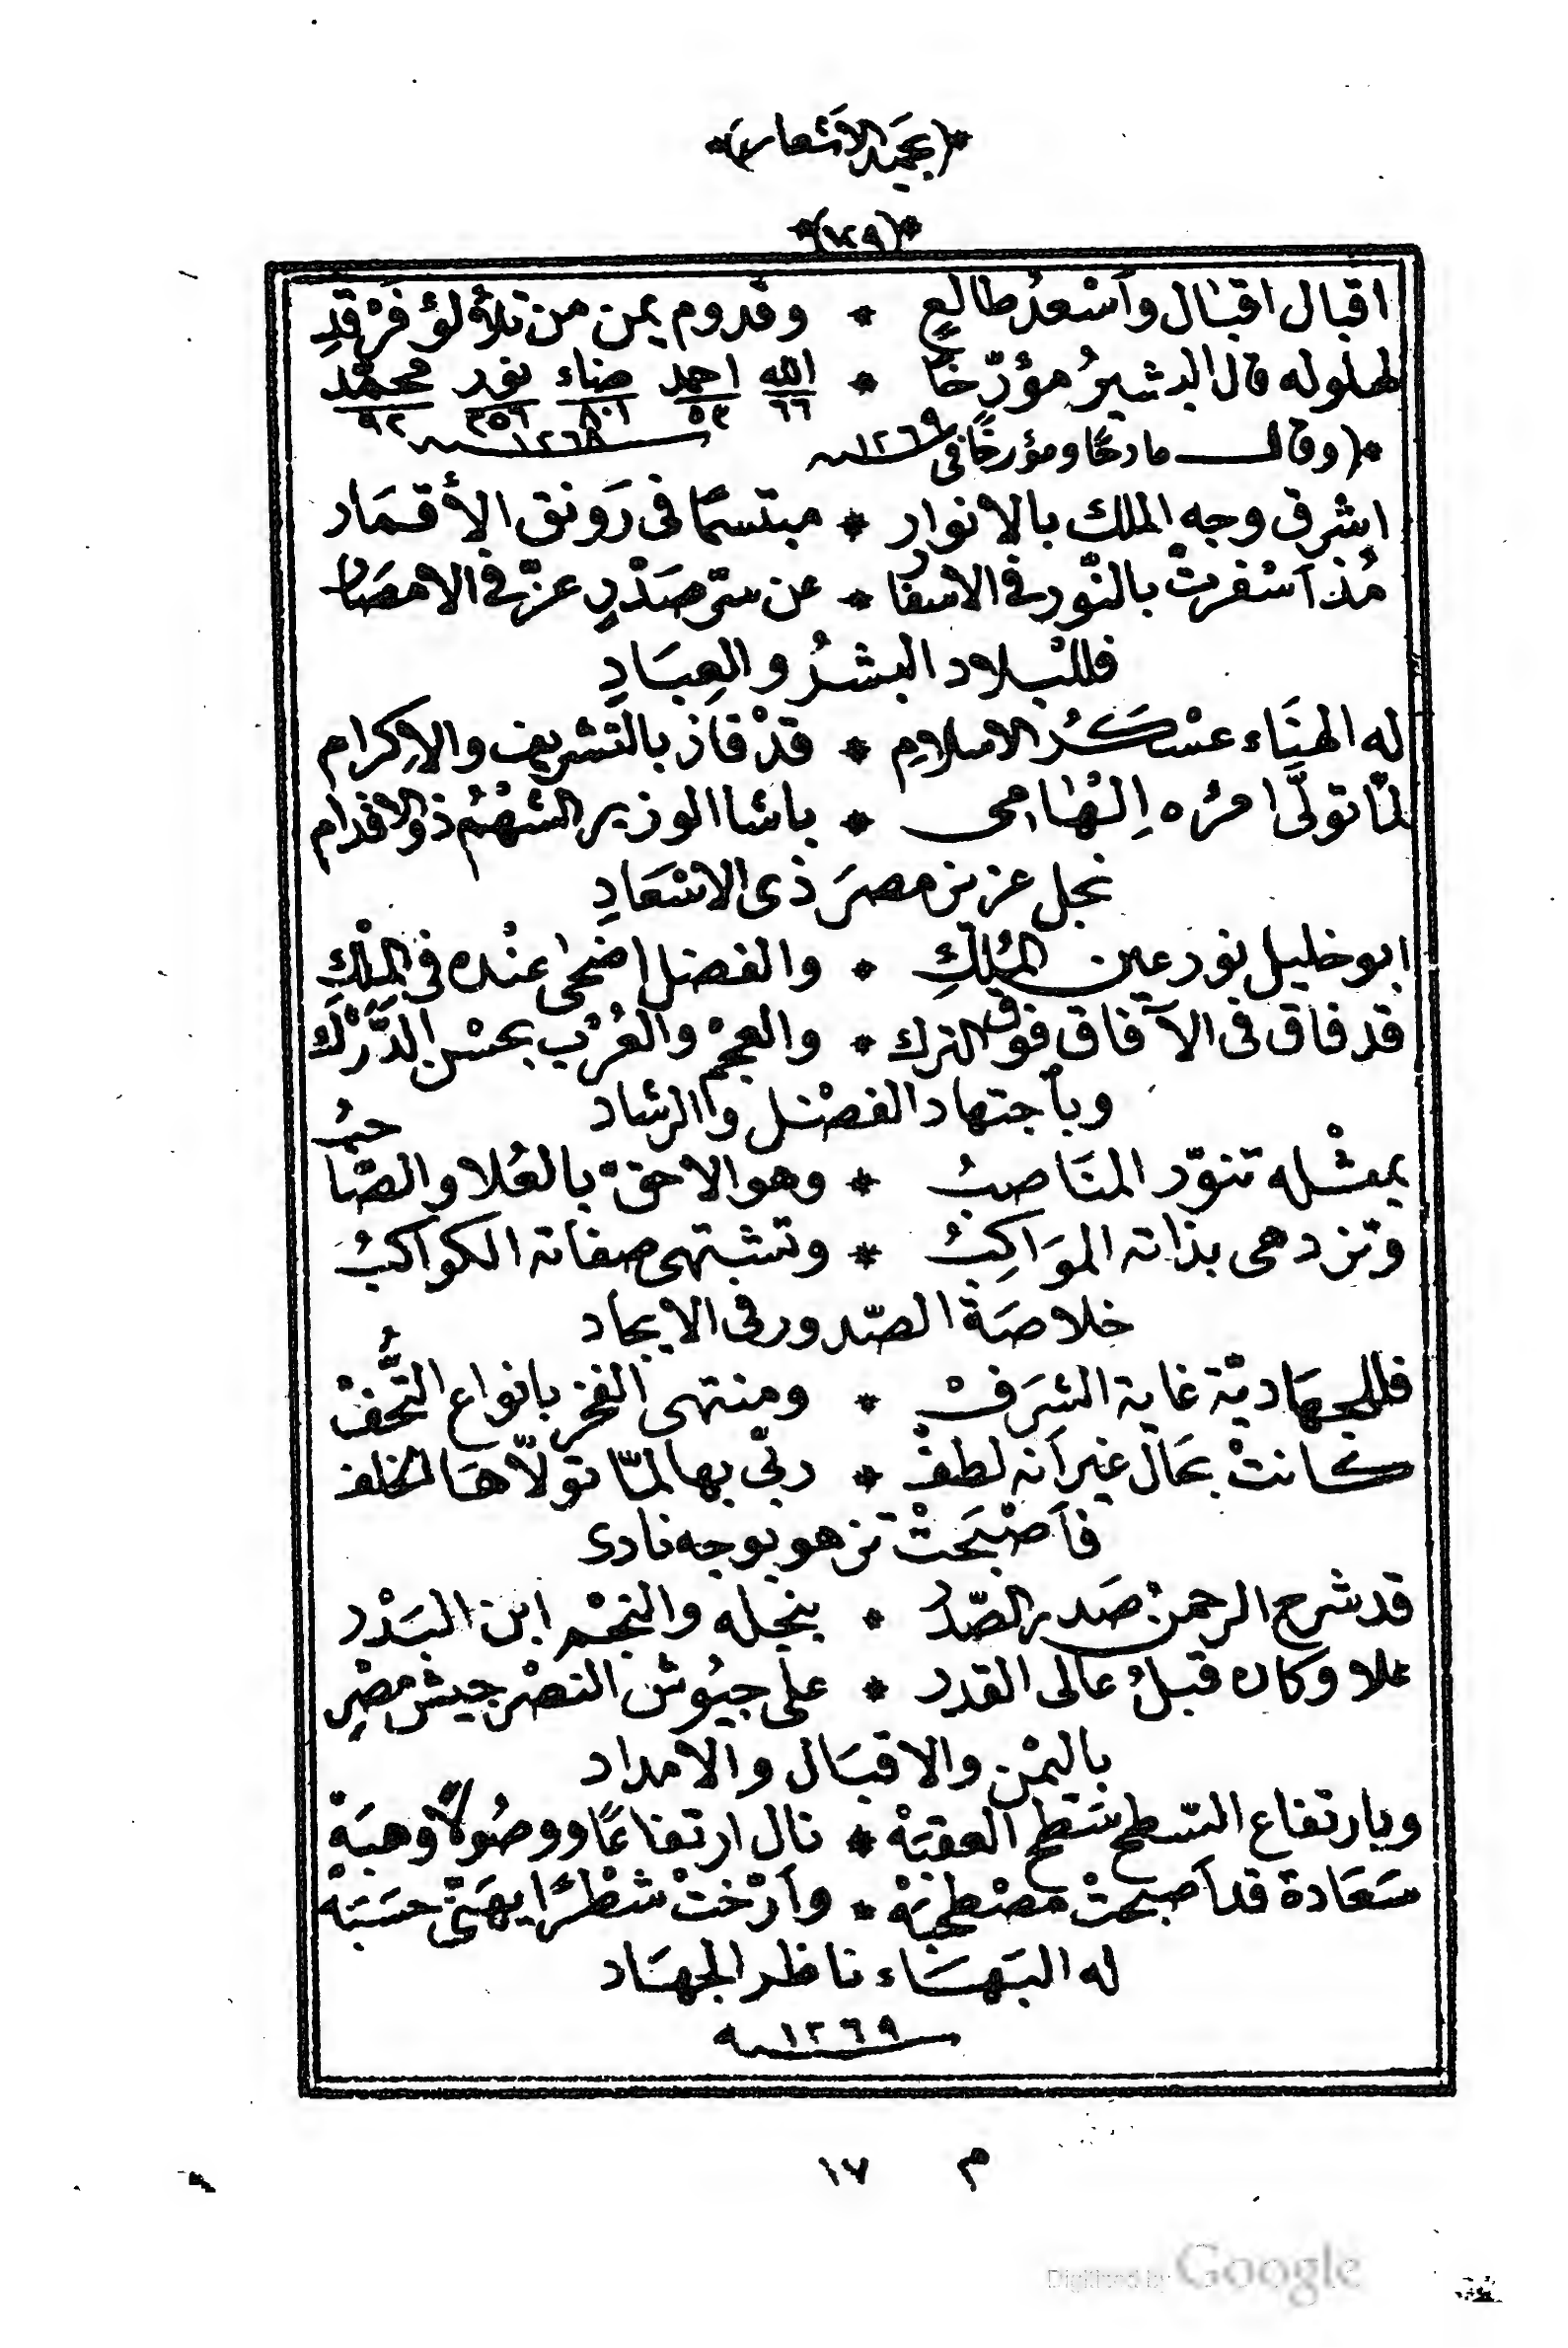 *(بحميد الاشعار)*
*(١٢٩)*
اقبال اقبال وأسعدُ طالعٍ * وقدوم يمن من تلألؤ فرْقدِ
لهلوله قال البشيرُ مؤرّخًا * الله احمد ضاء نور محمّد
٦٦ ٥٣ ٨٠١ ٢٥٦ ٩٢
١٢٦٨
*(وقال مادحًا ومؤرخًا فى ١٢٦٩
اشرق وجه الملك بالانوار * مبتسمًا فى رَونق الأقمَار
مُذ أسْفرتْ بالنّور فى الاسفار * عن سرّ صَدْرٍ عزّ فى الامصَار
فللْبلاد البشرُ والعِبَادِ
له الهنَاء عسْكرُ الاسلامِ * قدْ فازَ بالتّشريف والاِكرام
لمّا تولّى امرُه اِلْهامى * باشا الوزير الشّهْمُ ذو الاقدام
نجل عزيز مصرَ ذى الاسْعَادِ
ابو خليل نور عين المُلكِ * والفضل اضحى عنْده فى المْلكِ
قد فاق فى الآفاق فوق الترك * والعجمْ والعُرْب بحسْن الدَّرْكِ
وبأجتهاد الفضْل واالرشاد
بمثْله تنوّر المنَاصبُ * وهو الاحقّ بالعُلا والصّاحبُ
وتزدهى بذاته الموَاكِبُ * وتشتهى صفاته الكواكبُ
خلاصَة الصّدور فى الايجاد
فللجهَاديّة غاية الشرَفْ * ومنتهى الفخر بانواع التُّحَفْ
كانتْ بحَال غير أنه لطفْ * ربّى بها لمّا تولّاهَا الخلف
فأصْبَحَتْ تزهو بوجه نادى
قد شرح الرحمنُ صَدر الصّدْر * بنجله والنجْم ابن البَدْر
علا وكان قبلُ عالى القدر * على جيُوش النصْر جيش مصْرِ
باليمْن والاقبَال والامداد
وبارتفاع السّطح سَطح العقبَهْ * نال ارتفاعًا ووصُولاً وهبَهْ
سَعَادة قد أصبحتْ مصْطحبَهْ * وأرّختْ شطْرًا يهَنّى حسَبَهْ
له البَهَاء ناظر الجهَاد
١٢٦٩
م ١٧
Digitized by Google